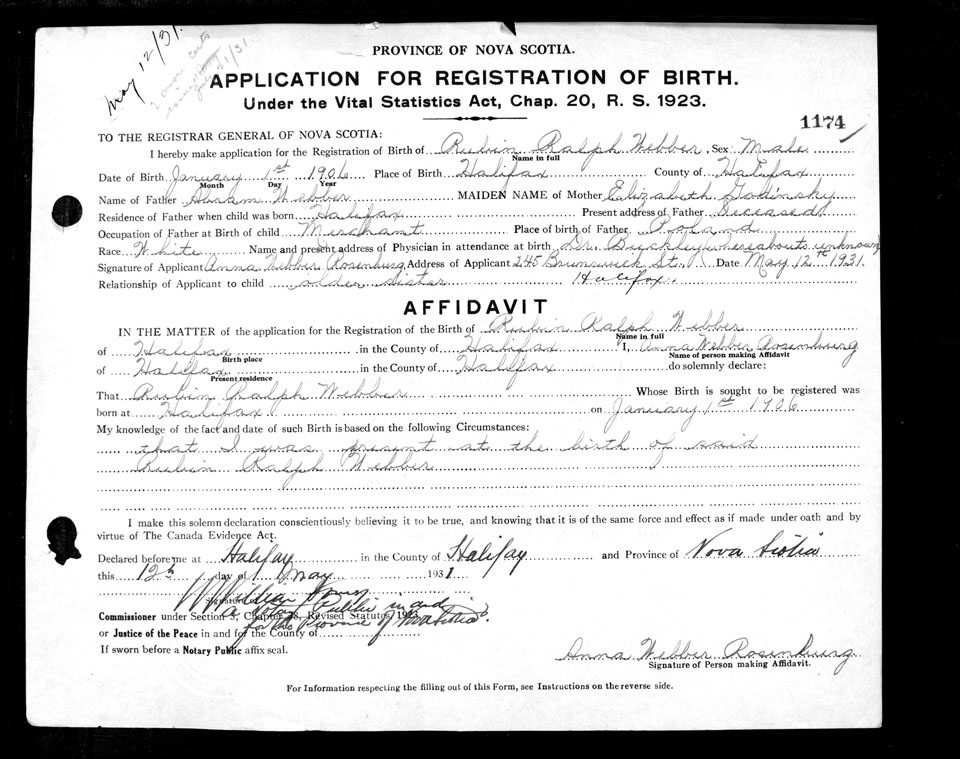 May 12/31.
PROVINCE OF NOVA SCOTIA.
APPLICATION FOR REGISTRATION OF BIRTH.
Under the Vital Statistics Act, Chap. 20, R. S. 1923.
1174
TO THE REGISTRAR GENERAL OF NOVA SCOTIA:
I hereby make application for the Registration of Birth of Rubin Ralph Webber Sex Male
Name in full
Date of Birth January 1st 1906 Place of Birth Halifax County of Halifax
Month Day Year
Name of Father Abram Webber MAIDEN NAME of Mother Elizabeth Godinsky
Residence of Father when child was born Halifax Present address of Father Deceased
Occupation of Father at Birth of child Merchant Place of birth of Father Poland
Race White Name and present address of Physician in attendance at birth Dr. Buckley whereabouts unknown
Signature of Applicant Anna Webber Rosenburg Address of Applicant 245 Brunswick St., Date May 12th 1931.
Relationship of Applicant to child older sister Halifax.
AFFIDAVIT
IN THE MATTER of the application for the Registration of the Birth of Rubin Ralph Webber
Name in full
of Halifax in the County of Halifax I, Anna Webber Rosenburg
Birth place Name of person making Affidavit
of Halifax in the County of Halifax do solemnly declare:
Present residence
That Rubin Ralph Webber Whose Birth is sought to be registered was
born at Halifax on January 1st 1906
My knowledge of the fact and date of such Birth is based on the following Circumstances:
that I was present at the birth of said
Rubin Ralph Webber
I make this solemn declaration conscientiously believing it to be true, and knowing that it is of the same force and effect as if made under oath and by
virtue of The Canada Evidence Act.
Declared before me at Halifax in the County of Halifax and Province of Nova Scotia
this 12th day of May 1931
A Notary Public in and
Commissioner under Section 3, Chapter 38, Revised Statutes 1923
for the Province of Nova Scotia.
or Justice of the Peace in and for the County of
If sworn before a Notary Public affix seal.
Anna Webber Rosenburg
Signature of Person making Affidavit.
For Information respecting the filling out of this Form, see Instructions on the reverse side.